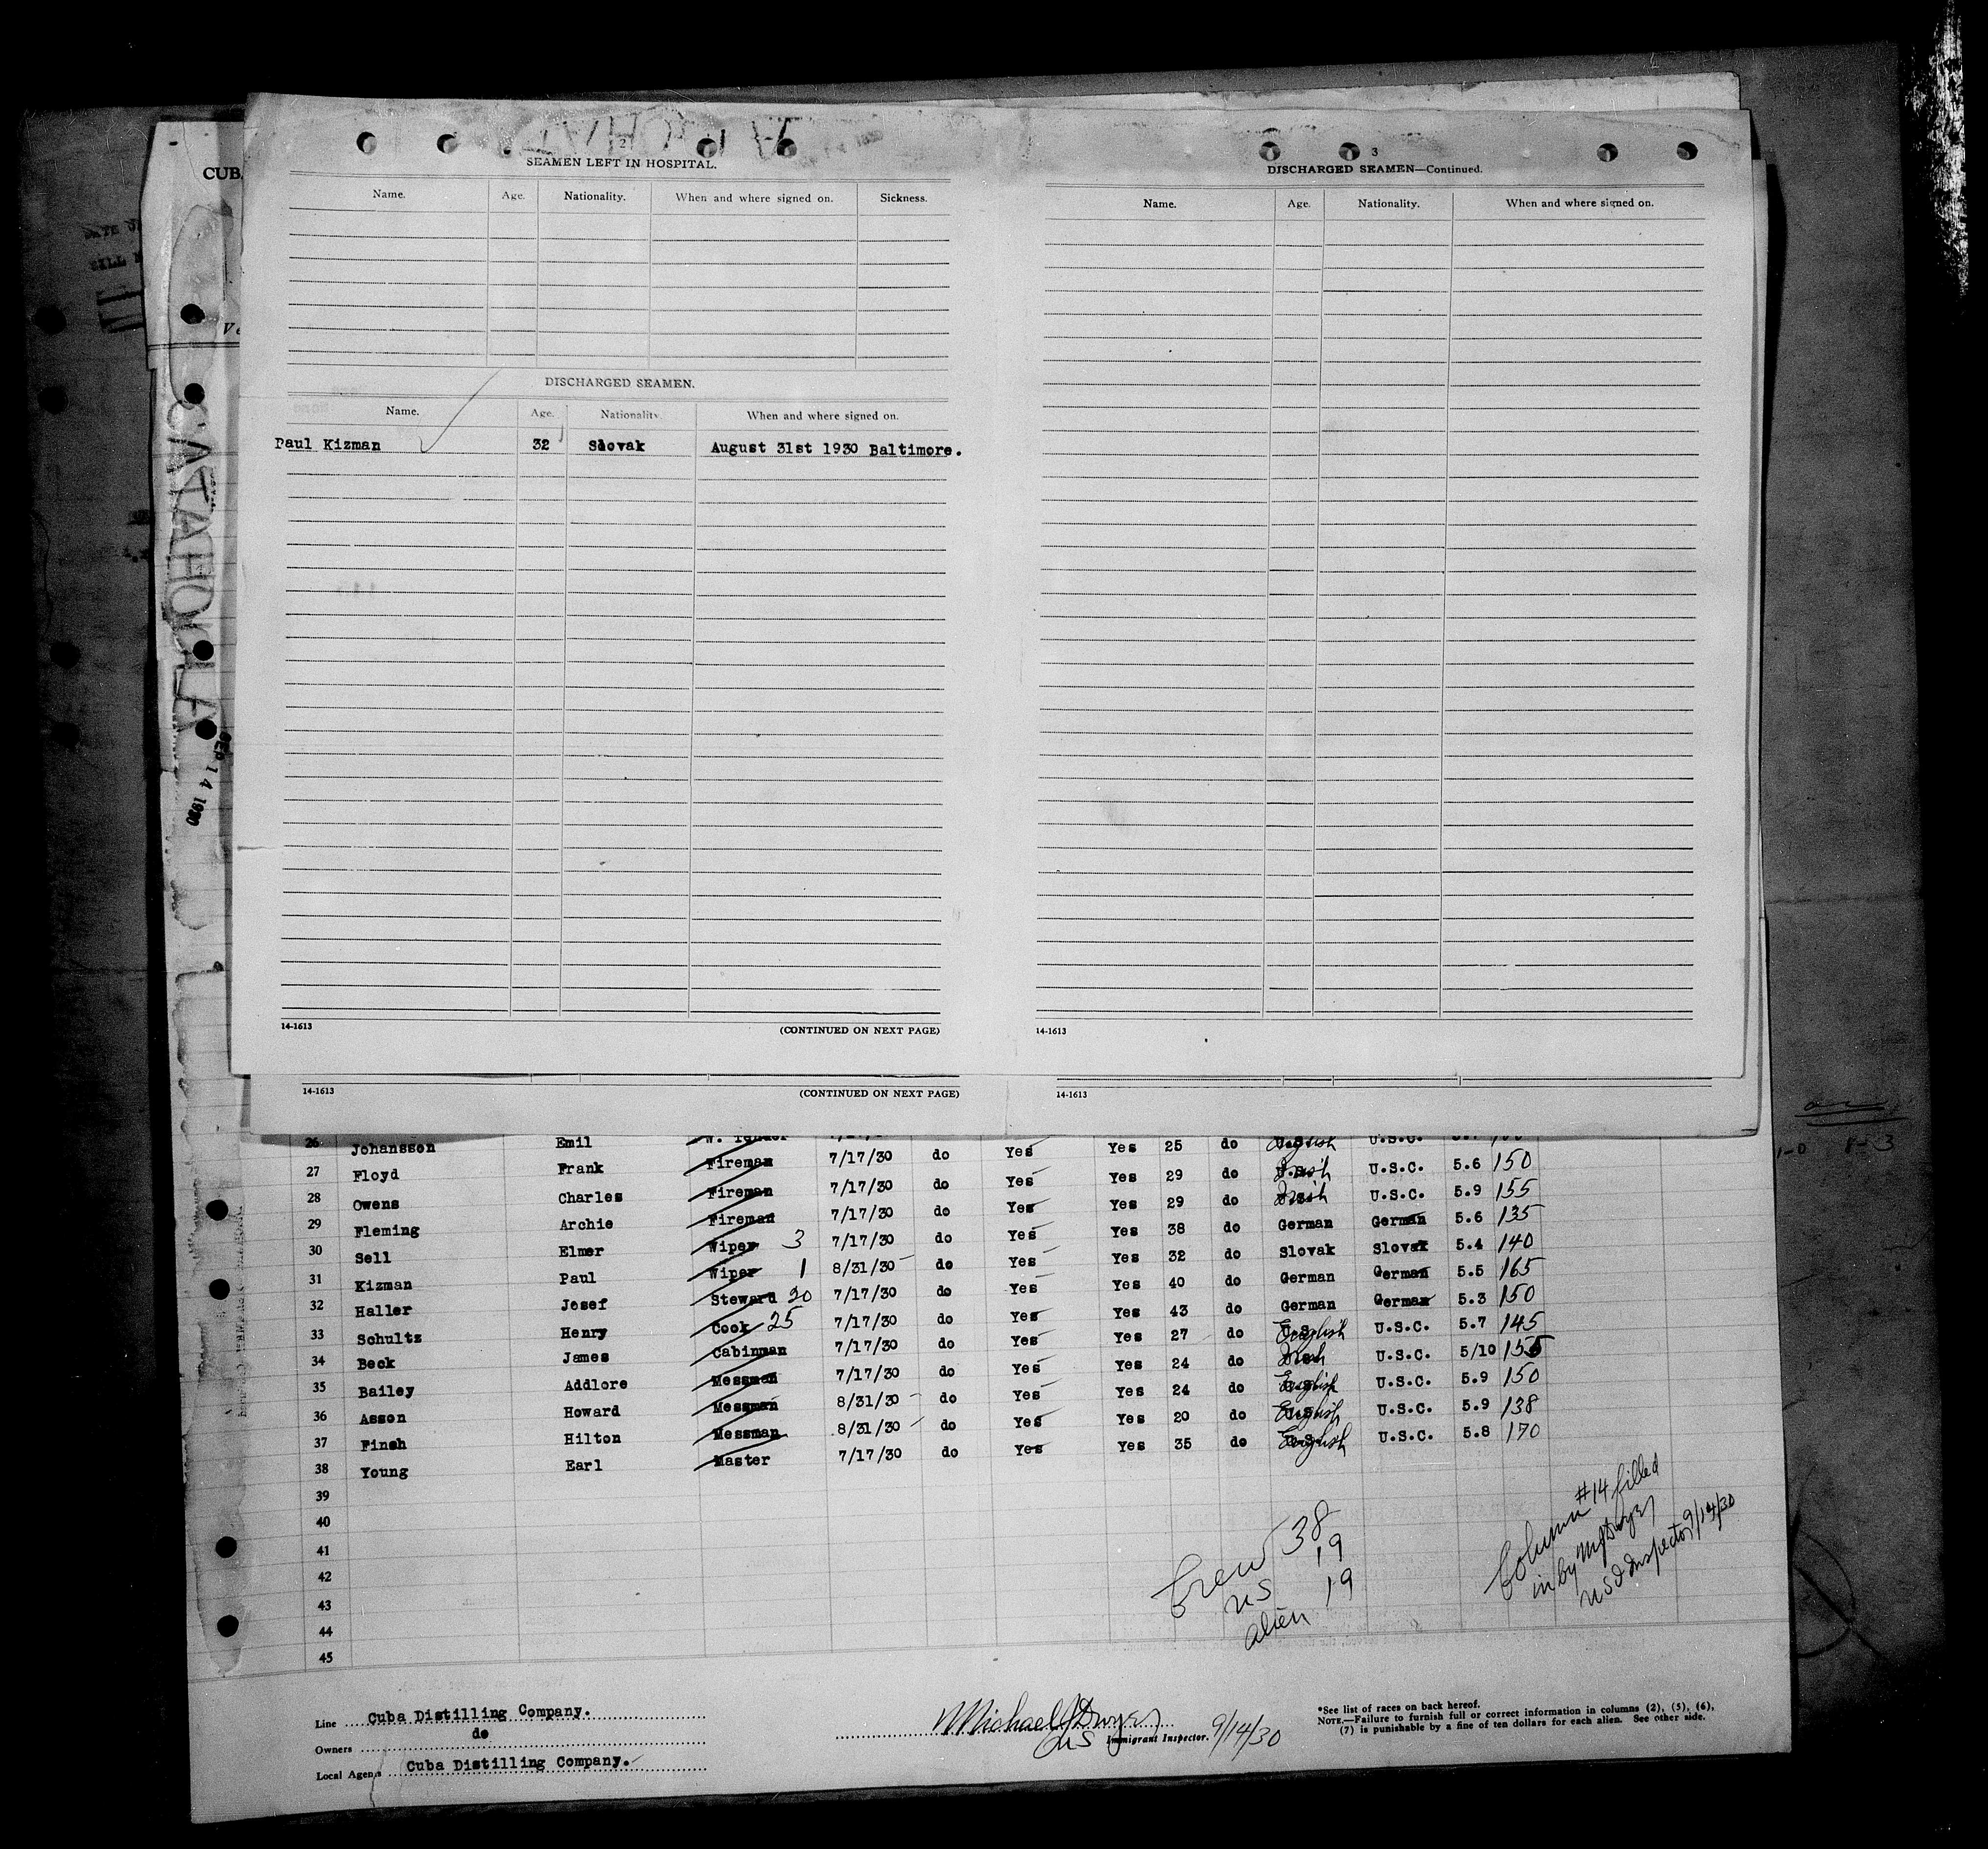 CUB
SATAHOULA
SEP 14 1930
2
SEAMEN LEFT IN HOSPITAL.
Name. Age. Nationality. When and where signed on. Sickness.
DISCHARGED SEAMEN.
Name. Age. Nationality. When and where signed on.
Paul Kizman 32 Slovak August 31st 1930 Baltimore.
14-1613 (CONTINUED ON NEXT PAGE)
3
DISCHARGED SEAMEN—Continued.
Name. Age. Nationality. When and where signed on.
14-1613
14-1613 (CONTINUED ON NEXT PAGE) 14-1613
26 Johansson Emil W. Tender
27 Floyd Frank Fireman 7/17/30 do Yes Yes 25 do English U.S.C.
28 Owens Charles Fireman 7/17/30 do Yes Yes 29 do Irish U.S.C. 5.6 150
29 Fleming Archie Fireman 7/17/30 do Yes Yes 29 do Irish U.S.C. 5.9 155
30 Sell Elmer Wiper 3 7/17/30 do Yes Yes 38 do German German 5.6 135
31 Kizman Paul Wiper 1 8/31/30 do Yes Yes 32 do Slovak Slovak 5.4 140
32 Haller Josef Steward 20 7/17/30 do Yes Yes 40 do German German 5.5 165
33 Schultz Henry Cook 25 7/17/30 do Yes Yes 43 do German German 5.3 150
34 Beck James Cabinman 7/17/30 do Yes Yes 27 do English U.S.C. 5.7 145
35 Bailey Addlore Messman 7/17/30 do Yes Yes 24 do Irish U.S.C. 5/10 155
36 Asson Howard Messman 8/31/30 do Yes Yes 24 do English U.S.C. 5.9 150
37 Finch Hilton Messman 8/31/30 do Yes Yes 20 do English U.S.C. 5.9 138
38 Young Earl Master 7/17/30 do Yes Yes 35 do English U.S.C. 5.8 170
39
40
41
42
43
44
45
Crew 38
US 19
alien 19
Column #14 filled
in by MJDwyer
US I Inspector 9/14/30
Line Cuba Distilling Company.
Owners do
Local Agents Cuba Distilling Company.
Michael J Dwyer
US Immigrant Inspector. 9/14/30
*See list of races on back hereof.
NOTE.—Failure to furnish full or correct information in columns (2), (5), (6),
(7) is punishable by a fine of ten dollars for each alien. See other side.